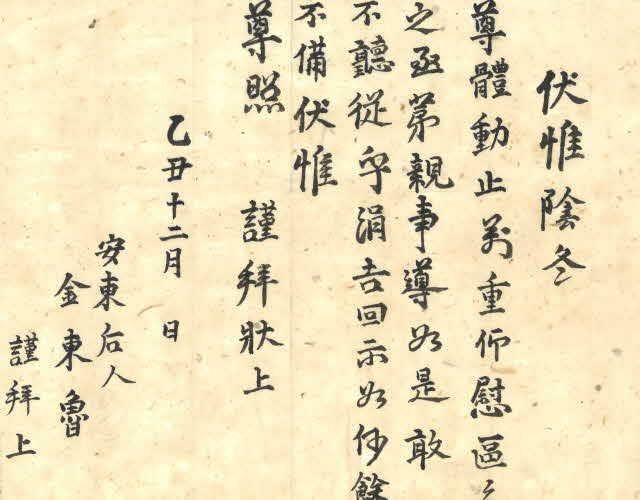 伏惟陰冬
尊體動止萬重仰慰區
之至第親事導如是敢
不聽從乎涓吉回示如何餘
不備伏惟
尊照 謹拜狀上
乙丑十二月 日
安東后人
金東魯
謹拜上